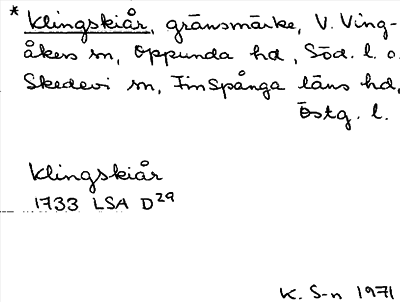 * Klingskiår, gränsmärke, V. Ving-
åkers sn, Oppunda hd, Söd. l. o.
Skedevi sn, Finspånga läns hd,
Östg. l.
Klingskiår
1733 LSA D29
K. S-n 1971